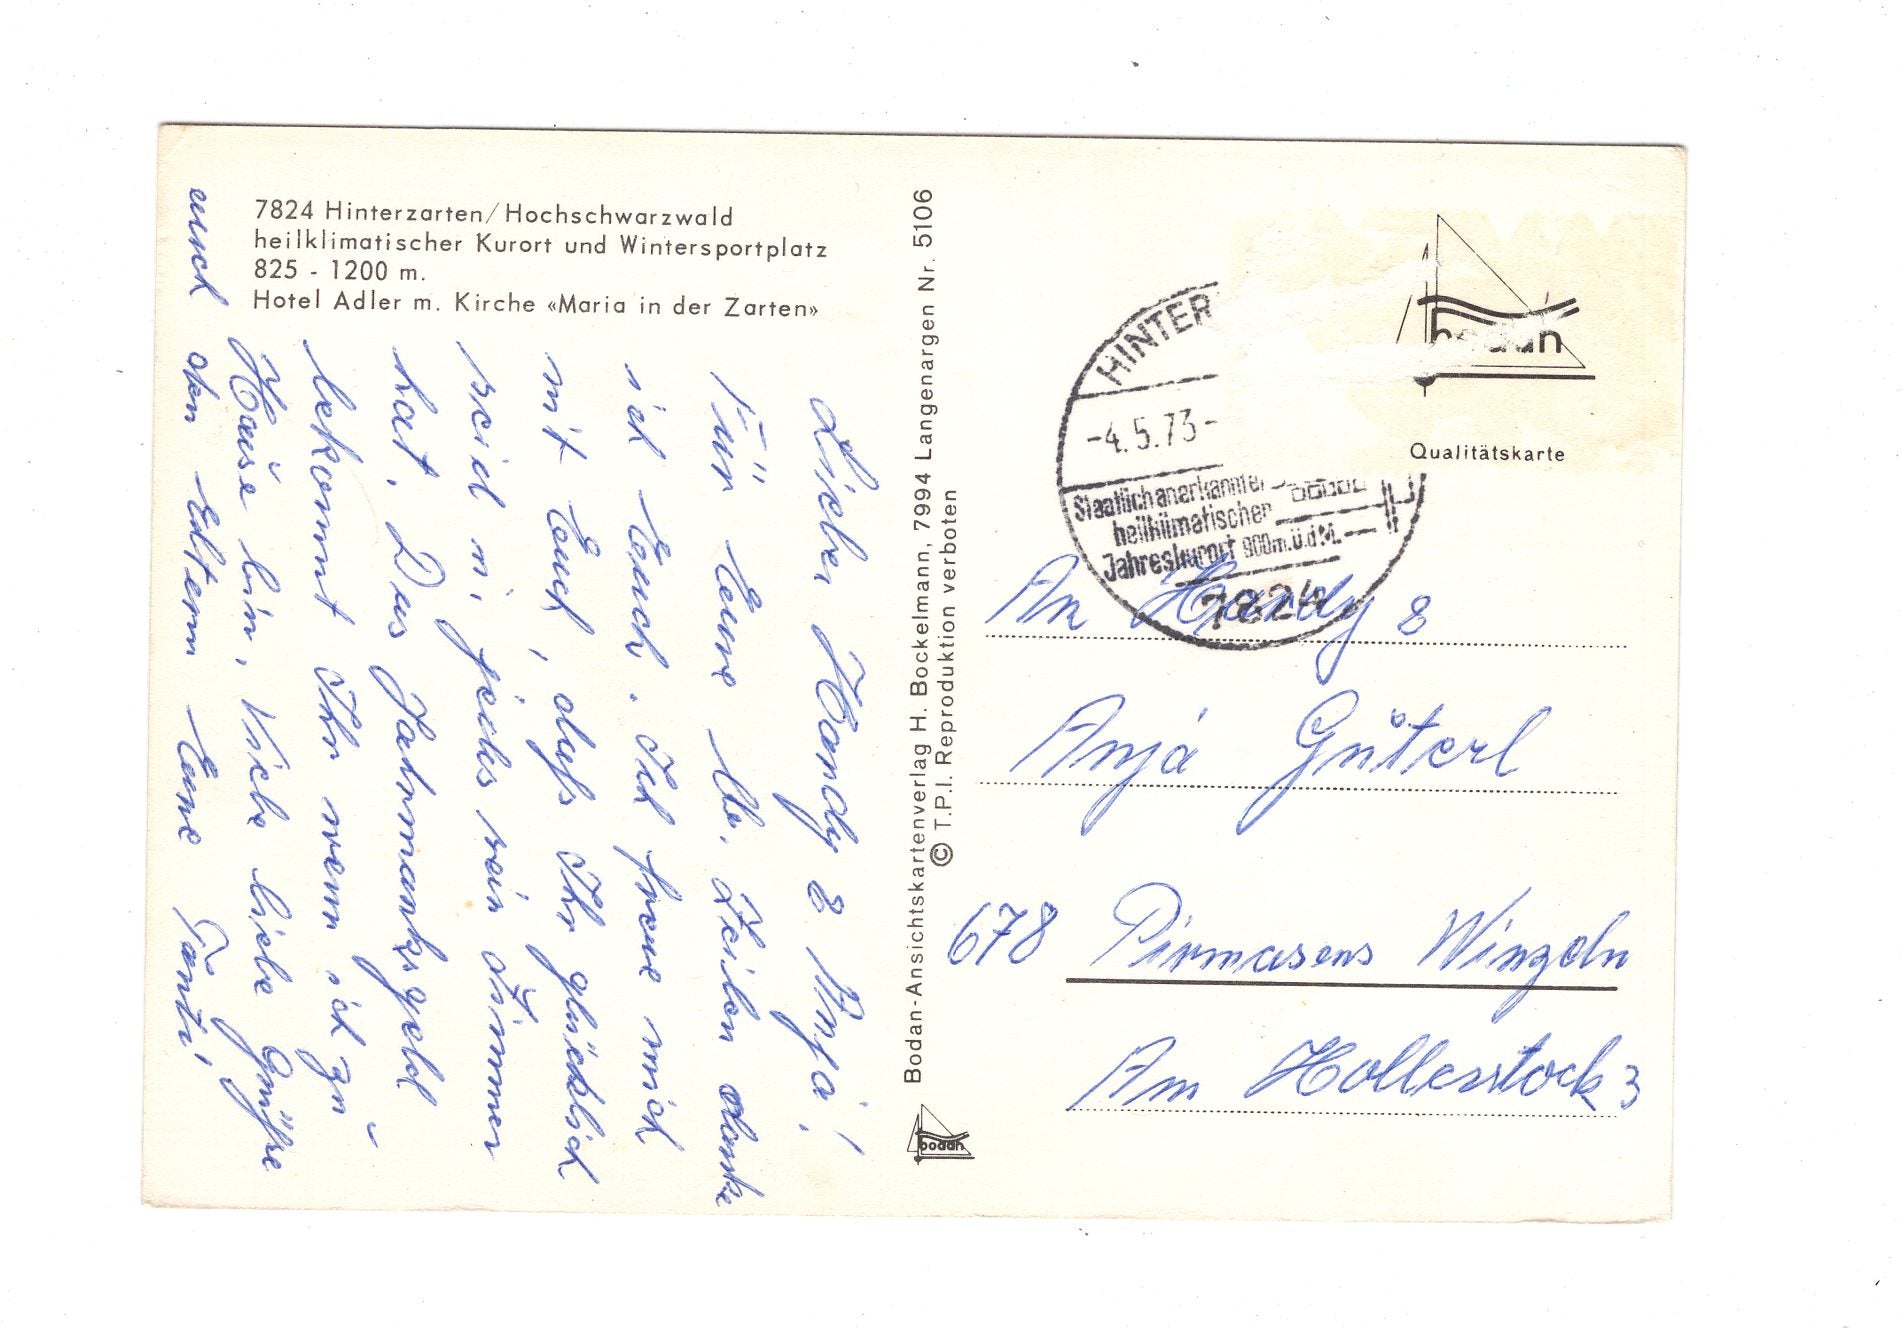 7824 Hinterzarten/Hochschwarzwald
heilklimatischer Kurort und Wintersportplatz
825 - 1200 m.
Hotel Adler m. Kirche «Maria in der Zarten»
Lieber Handy & Anja!
Für Eure lb. Zeilen danke
ich Euch. Ich freue mich
mit Euch, daß Ihr glücklich
seid u. jedes sein Zimmer
hat. Das Fahrmarksgeld
bekommt Ihr wenn ich zu
Hause bin. Viele liebe Grüße
auch den Eltern Eure Tanti
Bodan-Ansichtskartenverlag H. Bockelmann, 7994 Langenargen Nr. 5106
© T.P.I. Reproduktion verboten
bodan
HINTER
-4.5.73-
Staatlich anerkannter
heilklimatischer
Jahreskurort 900m.ü.d.M.
7824
bodan
Qualitätskarte
An Handy &
Anja Güterl
678 Pirmasens Winzeln
Am Hollerstock 3